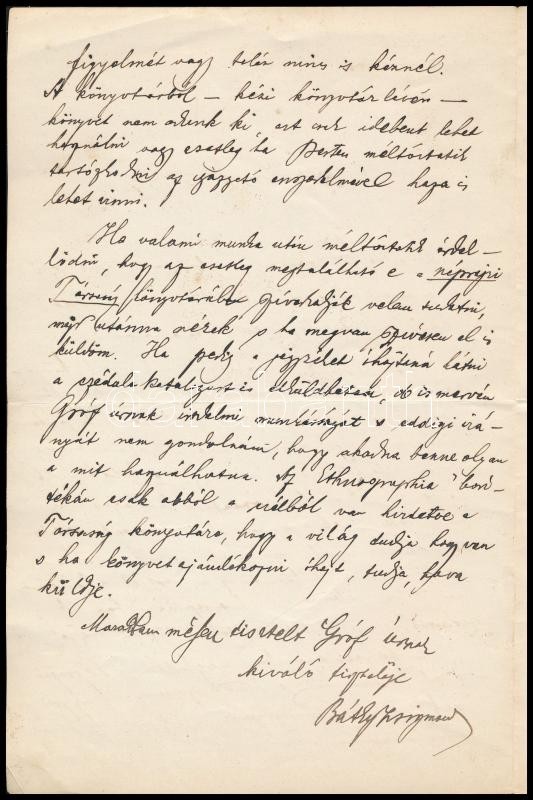 figyelmét vagy talán nincs is kéznél.
A könyvtárból – kézi könyvtár lévén –
könyvet nem adunk ki, azt csak idebent lehet
használni vagy esetleg ha Pesten méltóztatik
tartózkodni az igazgató engedelmével haza is
lehet vinni.
Ha valami munka után méltóztatik érdek-
lődni, hogy az esetleg megtalálható e a néprajzi
Társaság könyvtárában szíveskedjék velem tudatni,
majd utánna nézek s ha megvan szívesen el is
küldöm. Ha pedig a jegyzéket óhajtaná látni
a czédula katalógust is elküldhetem, de ismerve
Gróf úrnak irodalmi munkásságát s eddigi irá-
nyát nem gondolnám, hogy akadna benne olyan
a mit használhatna. Az Ethnographia borí-
tékán csak abból a célból van hirdetve a
Társaság könyvtára, hogy a világ tudja hogy van
s ha könyvet ajándékozni óhajt, tudja, hova
küldje.
Maradtam mélyen tisztelt Gróf úrnak
kiváló tisztelője
Bátky Zsigmond